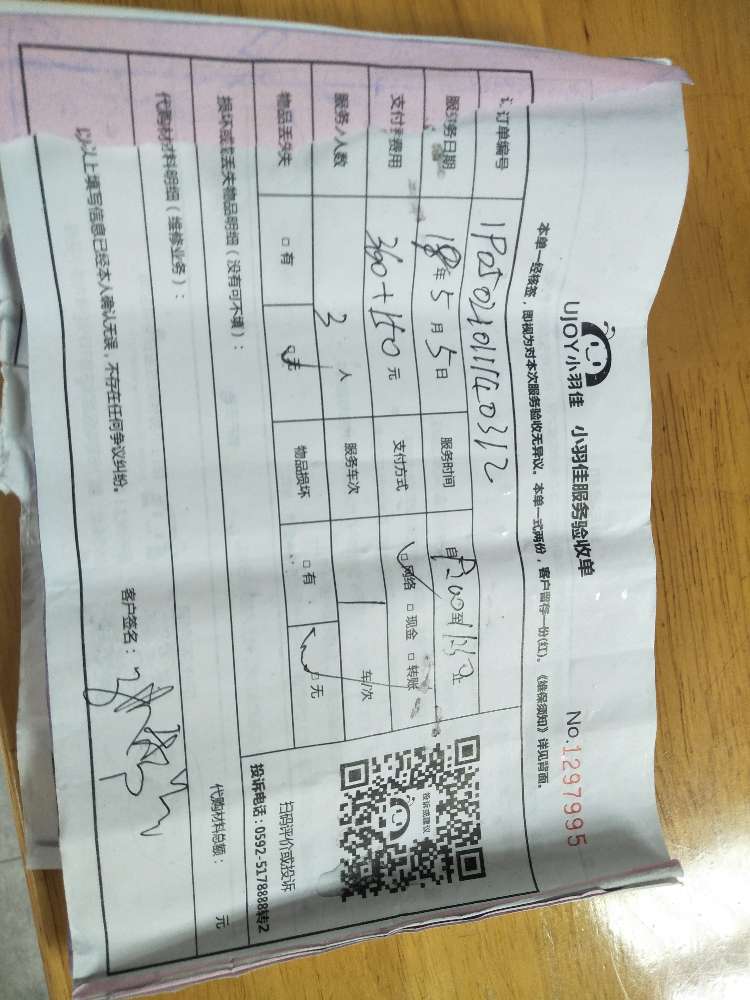 UJOY小羽佳 小羽佳服务验收单
No.1297995
本单一经核签,即视为对本次服务验收无异议。本单一式两份,客户留存一份(红)。《维保须知》详见背面。
订单编号
服务日期 18年5月5日 服务时间 自 至 止
支付费用 360+150元 支付方式 □网络 □现金 □转账
服务人数 3人 服务车次 1 车/次
物品丢失 □有 □无 物品损坏 □有 □无
投诉或建议
扫码评价或投诉
投诉电话:0592-5178888转2
损坏或丢失物品明细(没有可不填):
代购材料明细(维修业务): 代购材料总额: 元
以上填写信息已经本人确认无误,不存在任何争议纠纷。 客户签名: